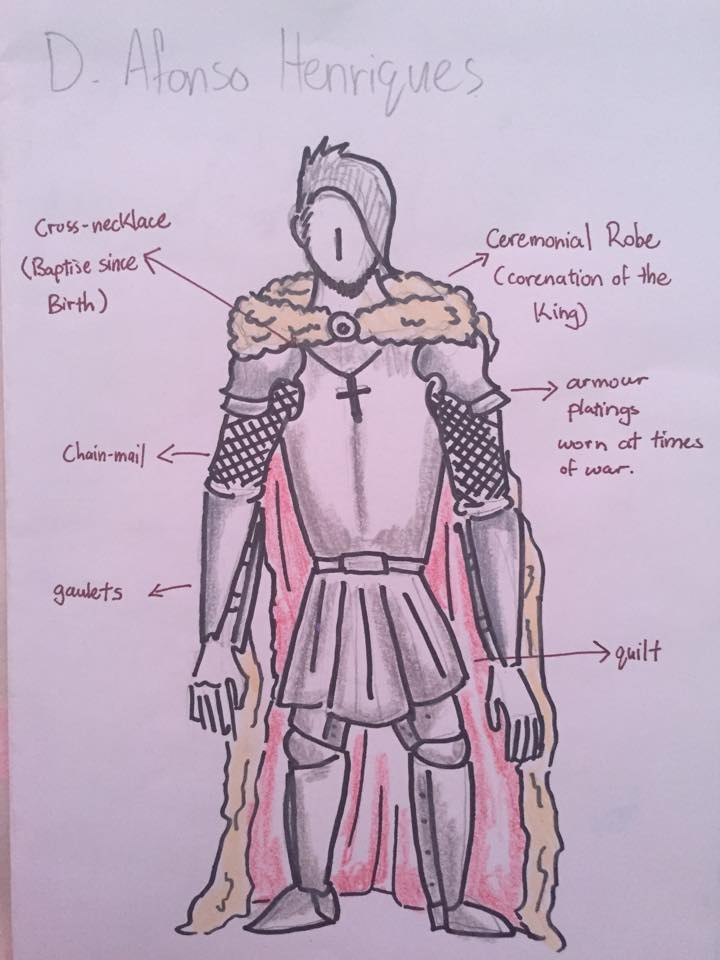 D. Afonso Henriques
Cross-necklace
(Baptise since
Birth)
Ceremonial Robe
(corenation of the
King)
armour
platings
worn at times
of war.
Chain-mail
gaulets
quilt